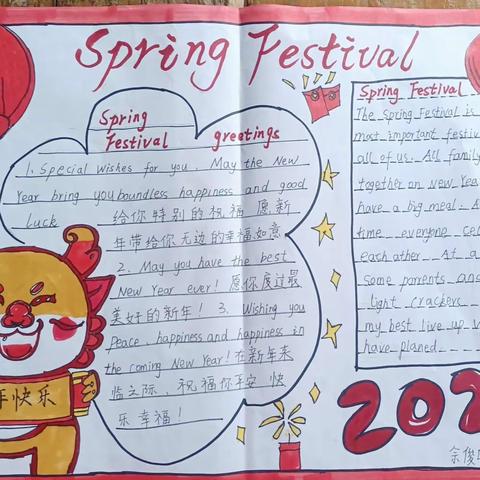 Spring Festival
Spring
Festival greetings
1. Special wishes for you. May the New
Year bring you boundless happiness and good
Luck 给你特别的祝福 愿新
年带给你无边的幸福如意
2. May you have the best
New Year ever! 愿你度过最
美好的新年! 3. Wishing you
Peace, happiness and happiness in
the coming New Year! 在新年来
临之际, 祝福你平安 快
乐 幸福!
Spring Festival
The Spring Festival is
most important festiv
all of us. All family
together on New Year
have a big meal. A
time everyone cel
each other. At a
Some parents and
light crackers
my best live up w
have planed
年快乐
202
余俊